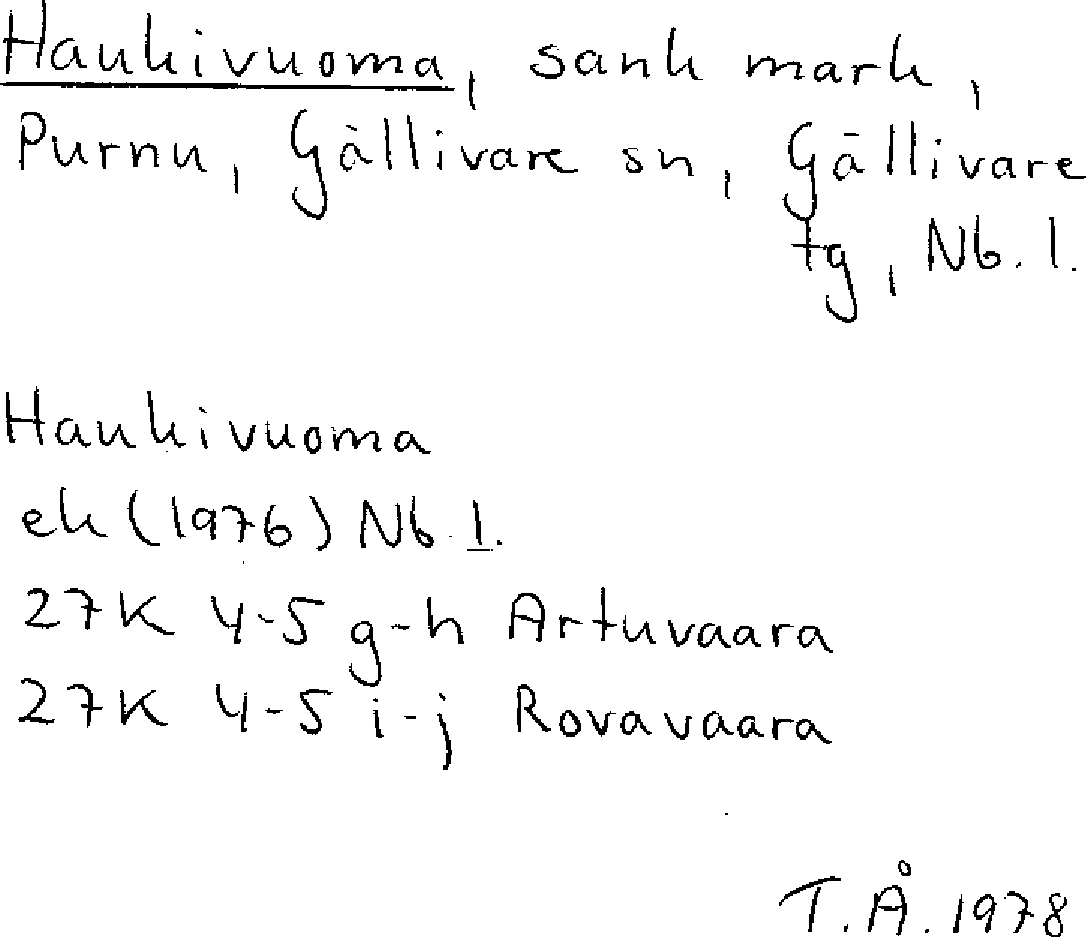 Haukivuoma, sank mark,
Purnu, Gällivare sn, Gällivare
tg, Nb. l.
Haukivuoma
ek (1976) Nb. l.
27K 4-5 g-h Artuvaara
27K 4-5 i-j Rovavaara
T.Å. 1978